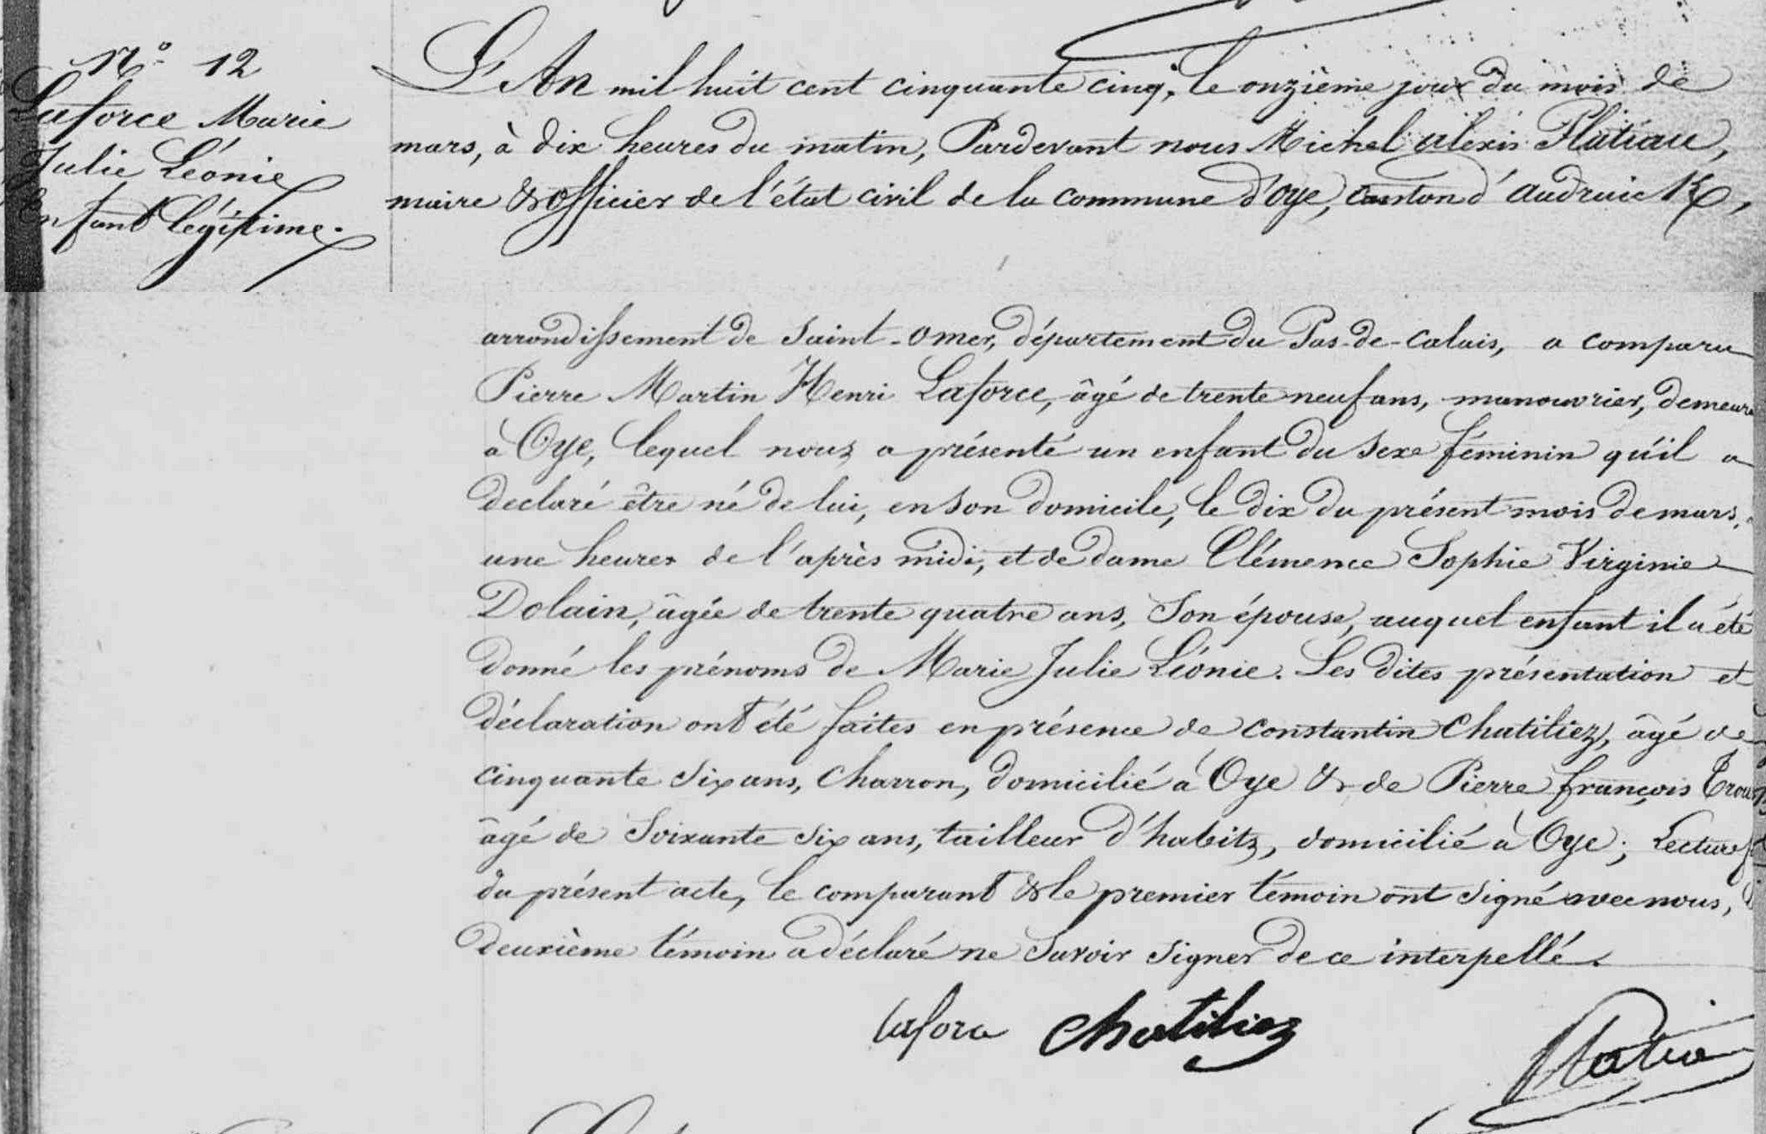 N° 12
Laforce Marie
Julie Léonie
Enfant légitime.
L'An mil huit cent cinquante cinq, le onzième jour du mois de
mars, à dix heures du matin, Pardevant nous Michel Alexis Platiau,
maire & officier de l'état civil de la commune d'Oye, canton d'audruick,
arrondissement de Saint-Omer, département du Pas-de-Calais, a comparu
Pierre Martin Henri Laforce, âgé de trente neuf ans, manouvrier, demeura
à Oye, lequel nous a présenté un enfant du sexe féminin qu'il a
déclaré être né de lui, en son domicile, le dix du présent mois de mars,
une heures de l'après midi, et de dame Clémence Sophie Virginie
Dolain, âgée de trente quatre ans, son épouse, auquel enfant il a été
donné les prénoms de Marie Julie Léonie. Les dites présentation et
déclaration ont été faites en présence de Constantin Chatiliez, âgé de
cinquante six ans, charron, domicilié à Oye & de Pierre françois
âgé de soixante six ans, tailleur d'habits, domicilié à Oye; Lecture
du présent acte, le comparant & le premier témoin ont signé avec nous,
deuxième témoin a déclaré ne savoir signer de ce interpellé.
Laforce Chatiliez
Platiau